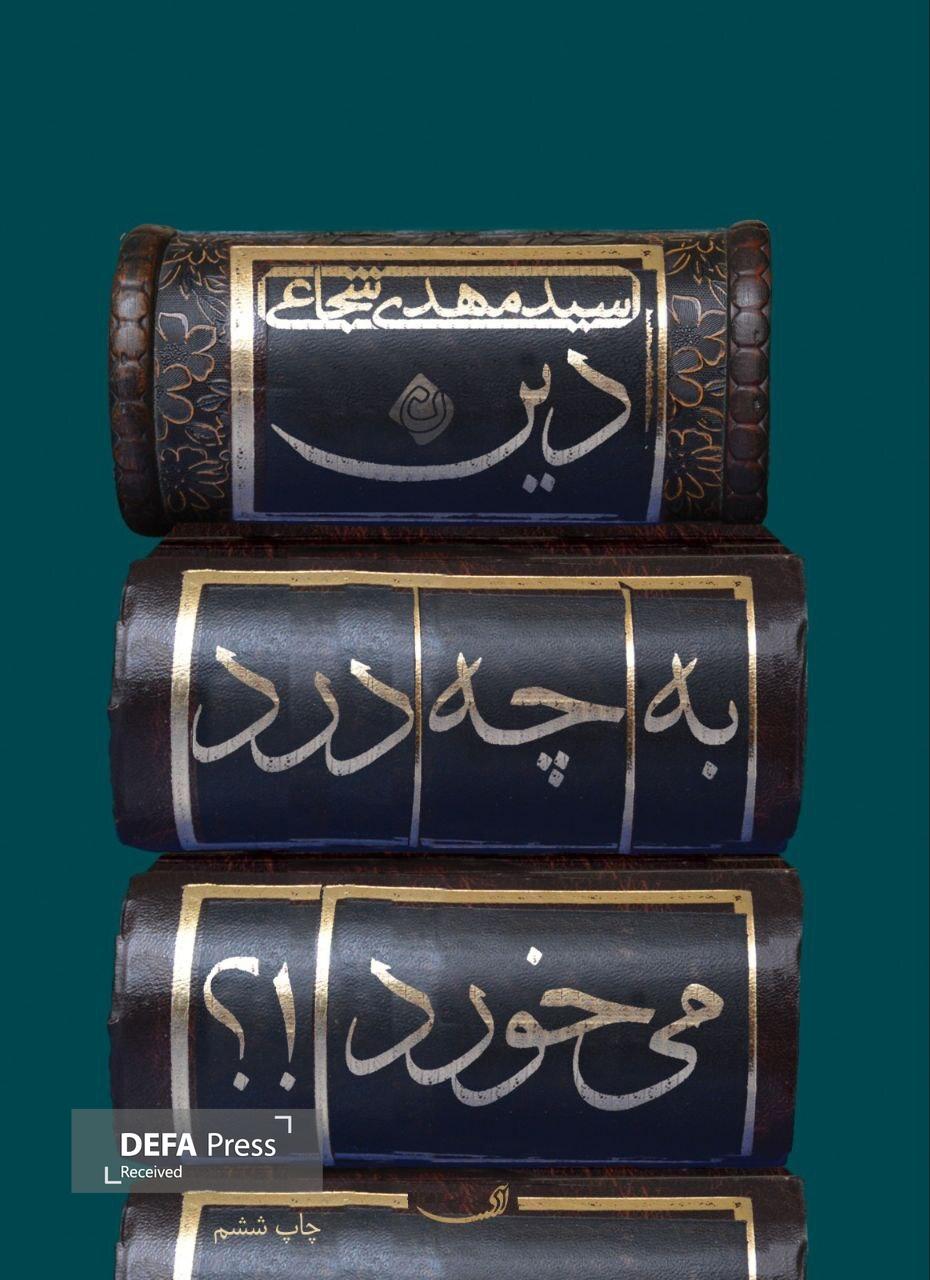 سید مهدی شجاعی
دین
به چه درد
می‌خورد !؟
DEFA Press
Received
چاپ ششم